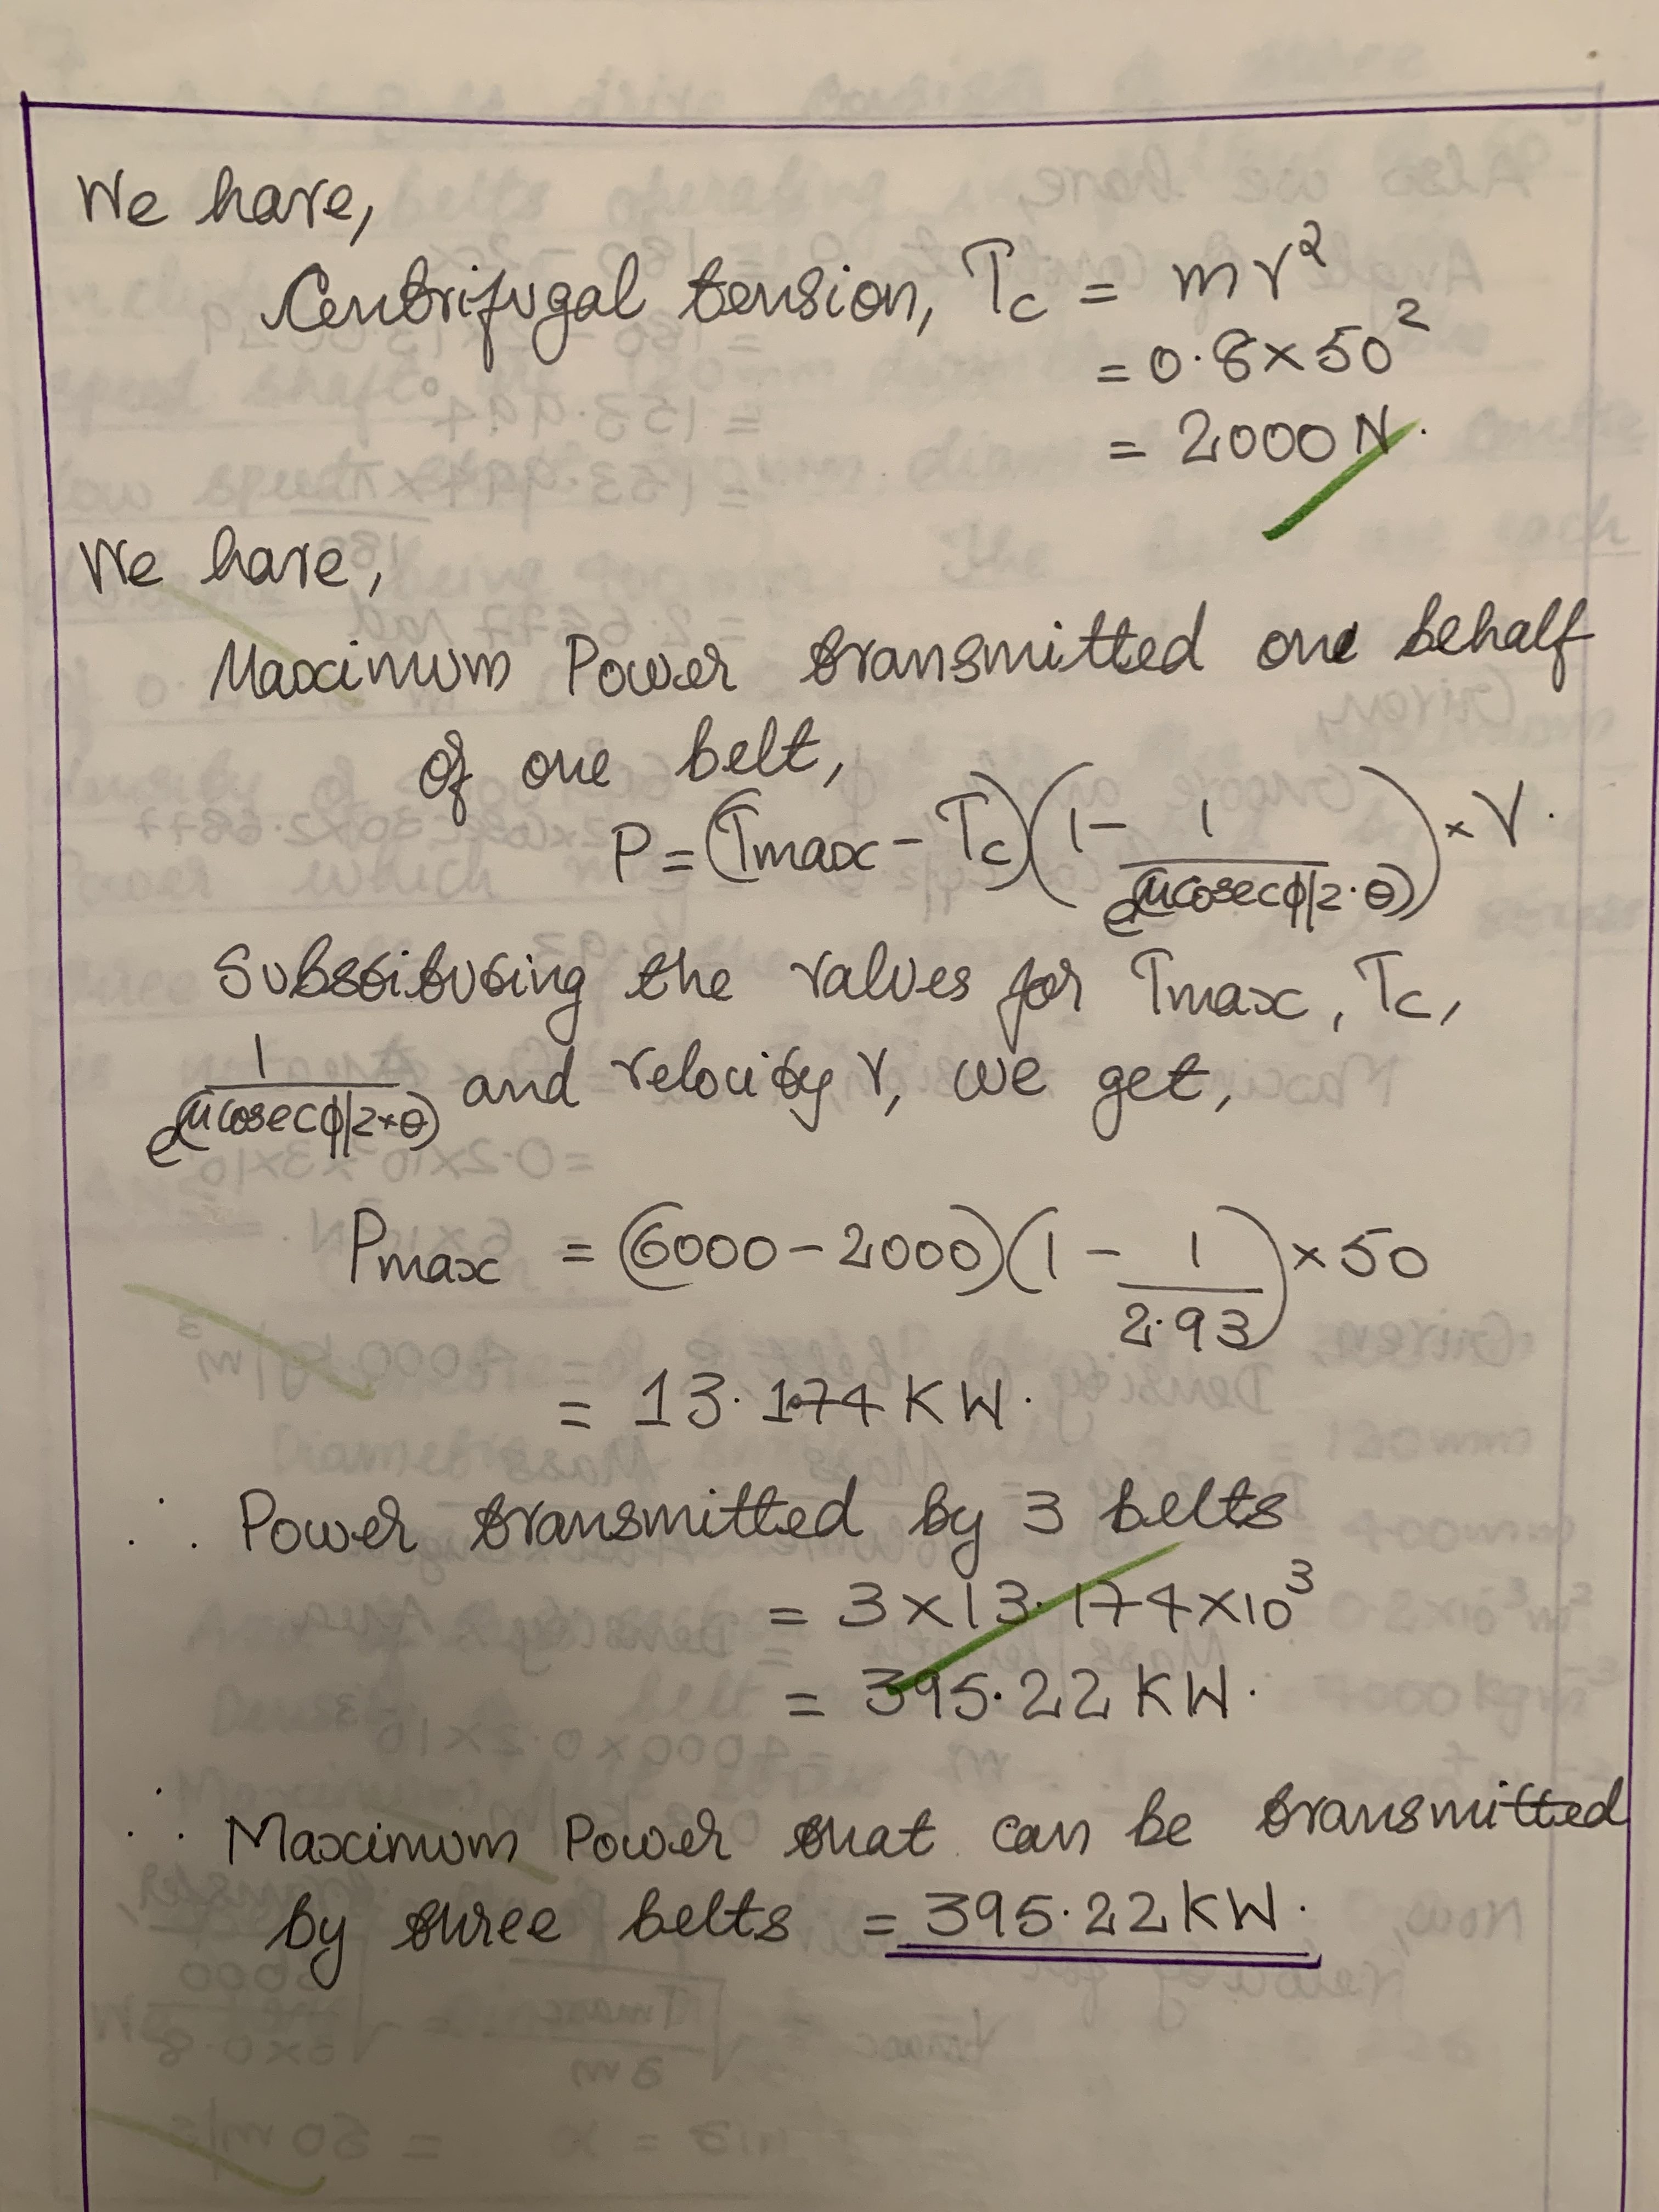 We have,
Centrifugal tension, Tc = mv²
= 0.8×50²
= 2000 N.
We have,
Maximum Power transmitted one behalf
of one belt,
P = (Tmax - Tc)(1 - 1/e^(μcosecϕ/2·θ)) × V.
Substituting the values for Tmax, Tc,
1/e^(μcosecϕ/2×θ) and velocity V, we get,
Pmax = (6000 - 2000)(1 - 1/2.93) × 50
= 13.174 KW.
∴ Power transmitted by 3 belts
= 3×13.174×10³
= 395.22 KW.
∴ Maximum Power that can be transmitted
by three belts = 395.22 KW.